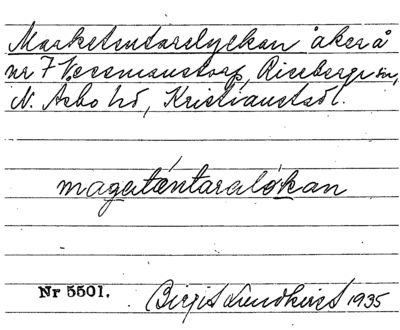 Marketentarelyckan åker å
nr 7 Vessmanstorp, Riseberga sn,
N. Åsbo hd, Kristianstads l.
magatǽntaralókan
Nr 5501. Birgit Lundkvist 1935